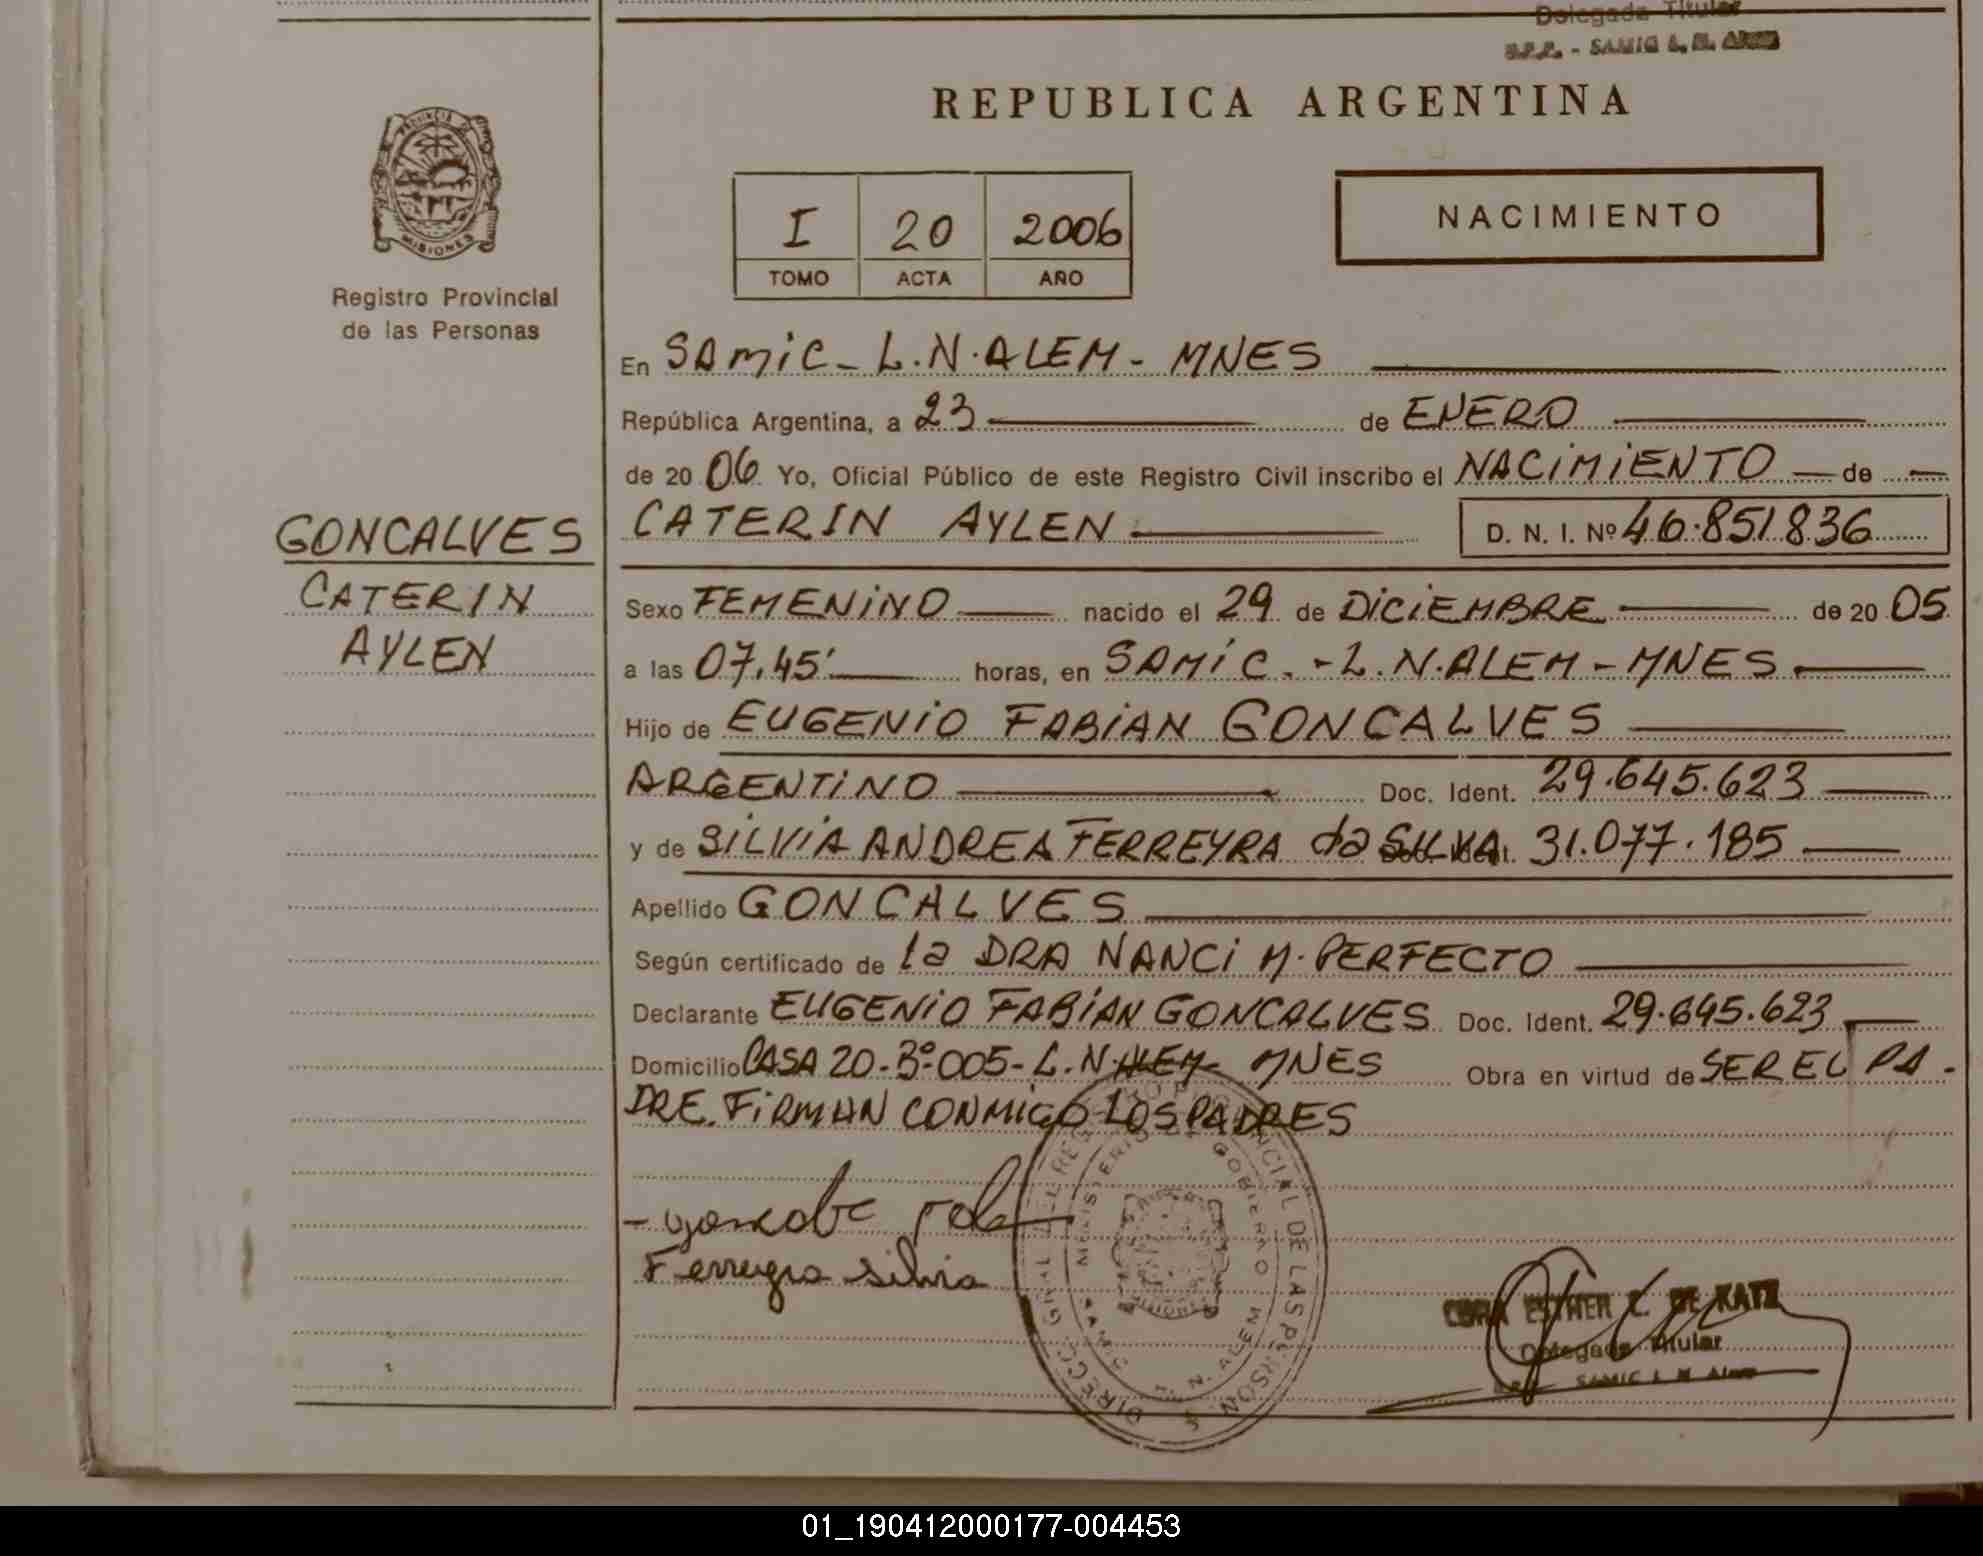 Delegada Titular
R.P.P. - SAMIC L. N. Alem
PROVINCIA DE
MISIONES
Registro Provincial
de las Personas
REPUBLICA ARGENTINA
I 20 2006
TOMO ACTA AÑO
NACIMIENTO
En SAMIC - L.N. ALEM - MNES
República Argentina, a 23 de ENERO
de 20 06 Yo, Oficial Público de este Registro Civil inscribo el NACIMIENTO de
GONCALVES
CATERIN
AYLEN
CATERIN AYLEN D. N. I. Nº 46.851.836
Sexo FEMENINO nacido el 29 de DICIEMBRE de 20 05
a las 07.45' horas, en SAMIC. - L.N. ALEM - MNES
Hijo de EUGENIO FABIAN GONCALVES
ARGENTINO Doc. Ident. 29.645.623
y de SILVIA ANDREA FERREYRA da SILVA 31.077.185
Apellido GONCALVES
Según certificado de la DRA NANCI M. PERFECTO
Declarante EUGENIO FABIAN GONCALVES Doc. Ident. 29.645.623
Domicilio CASA 20 - Bº 005 - L.N. ALEM - MNES Obra en virtud de SER EL PA-
DRE. FIRMAN CONMIGO LOS PADRES
Ferreyra Silvia
DIRECCION GRAL DEL REGISTRO PROVINCIAL DE LAS PERSONAS
MINISTERIO DE GOBIERNO
SAMIC L. N. ALEM
MISIONES
ESTHER Z. DE KATZ
Delegada Titular
SAMIC L. N. Alem
01_190412000177-004453